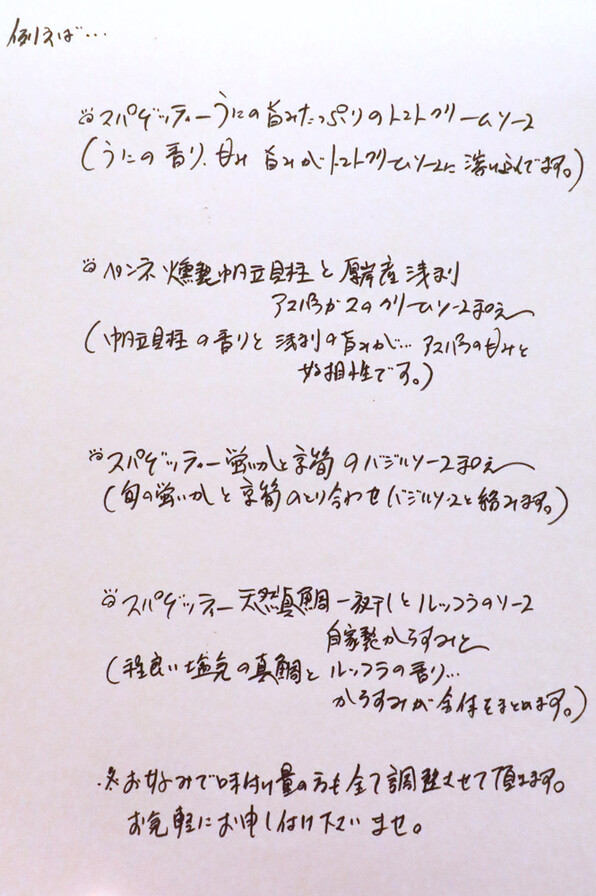 例えば…
スパゲッティーうにの旨みたっぷりのトマトクリームソース
(うにの香り、甘み 旨みがトマトクリームソースに溶け込んでます。)
ペンネ 燻製帆立貝柱と厚岸産浅利
アスパラガスのクリームソース和え
(帆立貝柱の香りと浅利の旨みが… アスパラの甘みと
好相性です。)
スパゲッティー蛍いかと京筍のバジルソース和え
(旬の蛍いかと京筍のとり合わせ バジルソースと絡みます。)
スパゲッティー天然真鯛一夜干しとルッコラのソース
自家製からすみと
(程良い塩気の真鯛とルッコラの香り…
からすみが全体をまとめます。)
※お好みで味付け量の方も全て調整させて頂きます。
お気軽にお申し付け下さいませ。